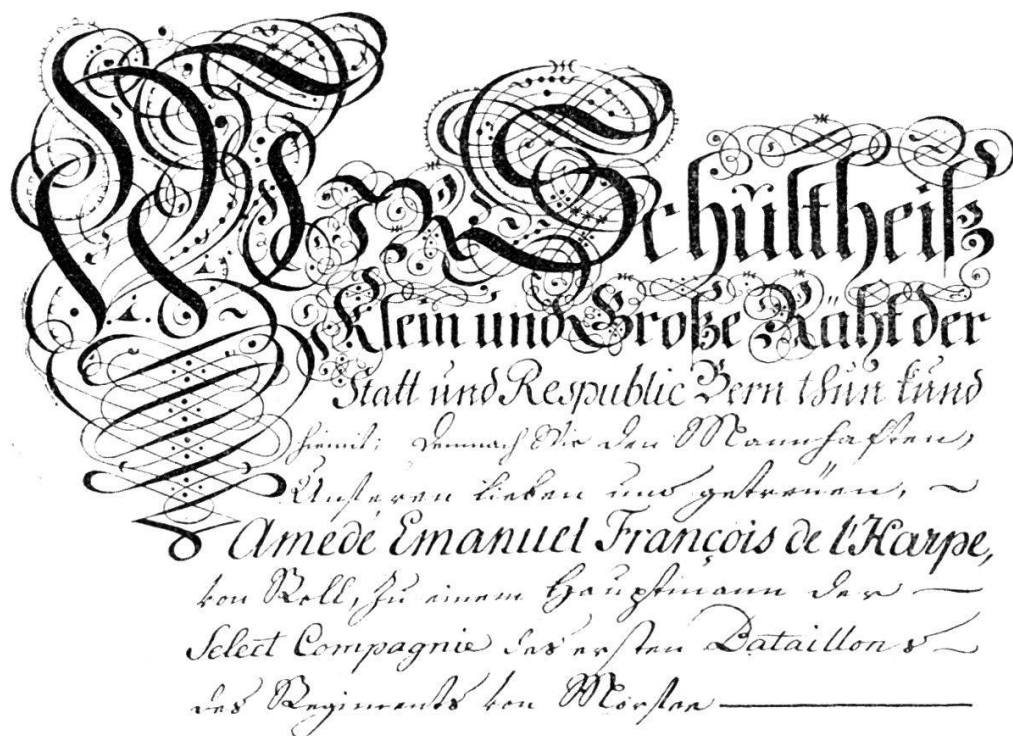 Wir Schultheiß
Klein und Große Räht der
Statt und Respublic Bern thun kund
hiemit; demnach Wir den Mannhaften,
Unseren lieben und getreüen, ~
Amedé Emanuel François de l'Harpe,
von Roll, zu einem Hauptmann der —
Select Compagnie des ersten Bataillons ~
des Regiments von Morsee ———